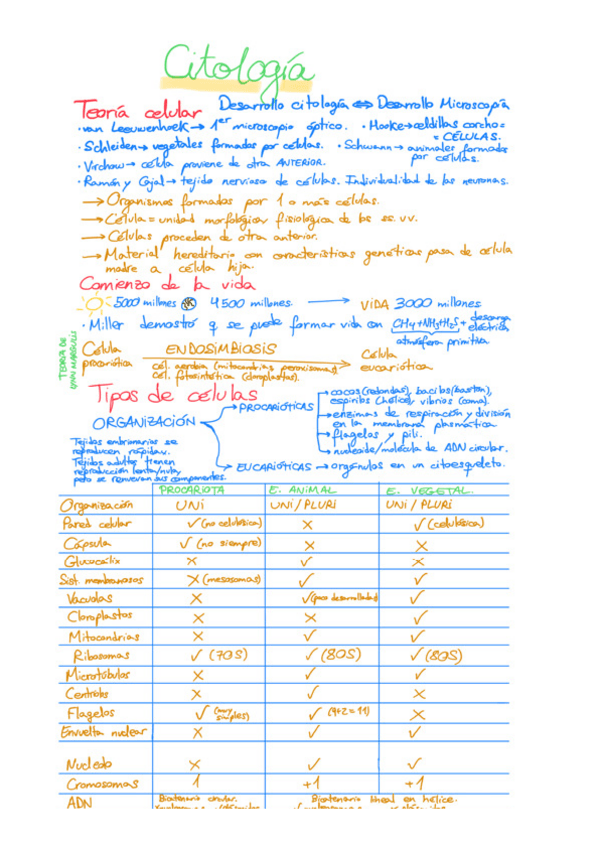 Citología
Teoría celular Desarrollo citología ⇔ Desarrollo Microscopía
· van Leeuwenhoek → 1er microscopio óptico. · Hooke → celdillas corcho =
= CÉLULAS.
· Schleiden → vegetales formados por células. · Schwann → animales formados
por células.
· Virchow → célula proviene de otra ANTERIOR.
· Ramón y Cajal → tejido nervioso de células. Individualidad de las neuronas.
→ Organismos formados por 1 o más células.
→ Célula = unidad morfológica fisiológica de los ss. vv.
→ Células proceden de otra anterior.
→ Material hereditario con características genéticas pasa de célula
madre a célula hija.
Comienzo de la vida
5000 millnes 4500 millones. → VIDA 3000 millones
· Miller demostró q se puede formar vida con CH4+NH3+H2S + descarga
eléctrica
atmósfera primitiva
TEORÍA DE
LYNN MARGULIS
Célula
procariótica
ENDOSIMBIOSIS
cél. aerobia (mitocondrias, peroxisomas)
cél. fotosintética (cloroplastos).
Célula
eucariótica
Tipos de células
ORGANIZACIÓN
→ PROCARIÓTICAS
→ cocos (redondas), bacilos (bastón),
espirilos (hélice), vibrios (coma).
→ enzimas de respiración y división
en la membrana plasmática.
→ flagelos y pili.
→ nucleoide/molécula de ADN circular.
→ EUCARIÓTICAS → orgánulos en un citoesqueleto.
Tejidos embrionarios se
reproducen rápidav.
Tejidos adultos tienen
reproducción lenta/nula,
pero se renuevan sus componentes.
PROCARIOTA E. ANIMAL E. VEGETAL.
Organización UNI UNI / PLURI UNI / PLURI
Pared celular ✓ (no celulósica) × ✓ (celulósica)
Cápsula ✓ (no siempre) × ×
Glucocálix × ✓ ×
Sist. membranosos × (mesosomas) ✓ ✓
Vacuolas × ✓ (poco desarrolladas) ✓
Cloroplastos × × ✓
Mitocondrias × ✓ ✓
Ribosomas ✓ (70S) ✓ (80S) ✓ (80S)
Microtúbulos × ✓ ✓
Centriolos × ✓ ×
Flagelos ✓ (muy simples) ✓ (9+2=11) ×
Envuelta nuclear × ✓ ✓
Nucleolo × ✓ ✓
Cromosomas 1 +1 +1
ADN Bicatenario circular. Bicatenario lineal en hélice.